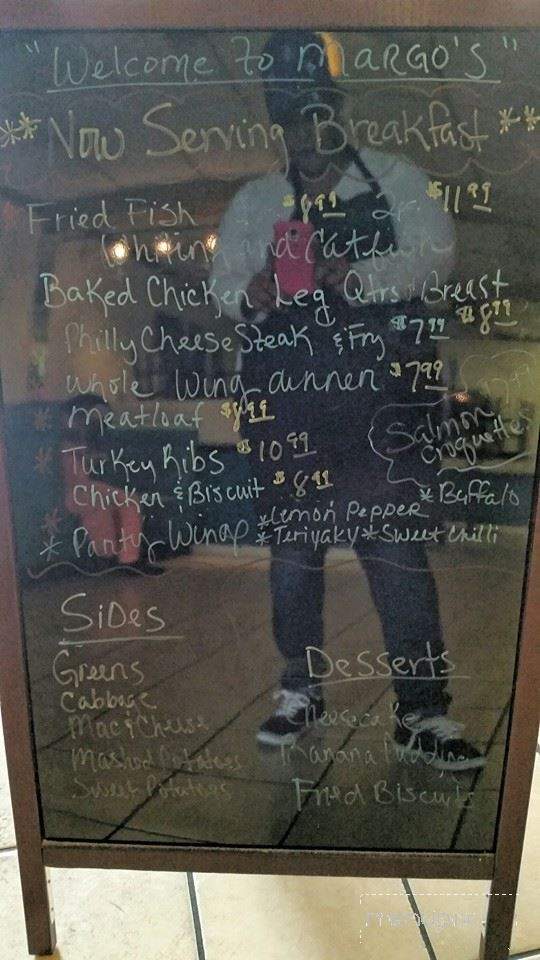 "Welcome To MARGO'S"
** Now Serving Breakfast **
Fried Fish $8.99 2pc $11.99
Whiting and Catfish
Baked Chicken Leg Qtrs Breast $8.99
Philly CheeseSteak & Fry $7.99
Whole Wing dinner $7.99
* Meatloaf $8.99
Salmon
Croquettes
* Turkey Ribs $10.99
Chicken & Biscuit $8.99
* Buffalo
* Party Wings * Lemon Pepper
* Teriyaky * Sweet Chilli
Sides
Greens
Cabbage
Mac & Cheese
Mashed Potatoes
Sweet Potatoes
Desserts
Cheesecake
Banana Pudding
Fried Biscuits